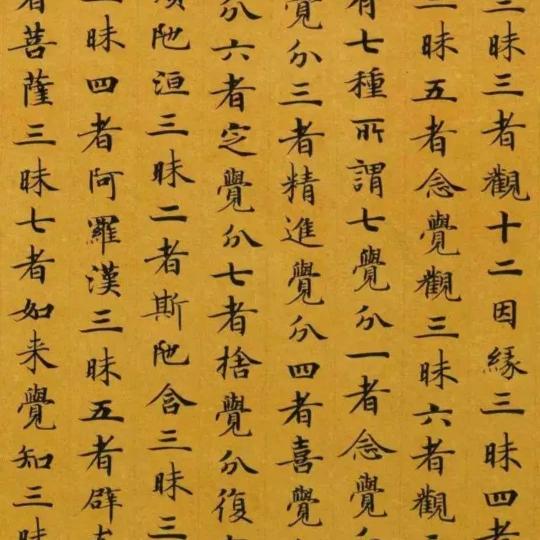 三昧三者觀十二因緣三昧四者
三昧五者念覺觀三昧六者觀
有七種所謂七覺分一者念覺分
覺分三者精進覺分四者喜覺
分六者定覺分七者捨覺分復
須陀洹三昧二者斯陀含三昧三
三昧四者阿羅漢三昧五者辟支
者菩薩三昧七者如来覺知三昧